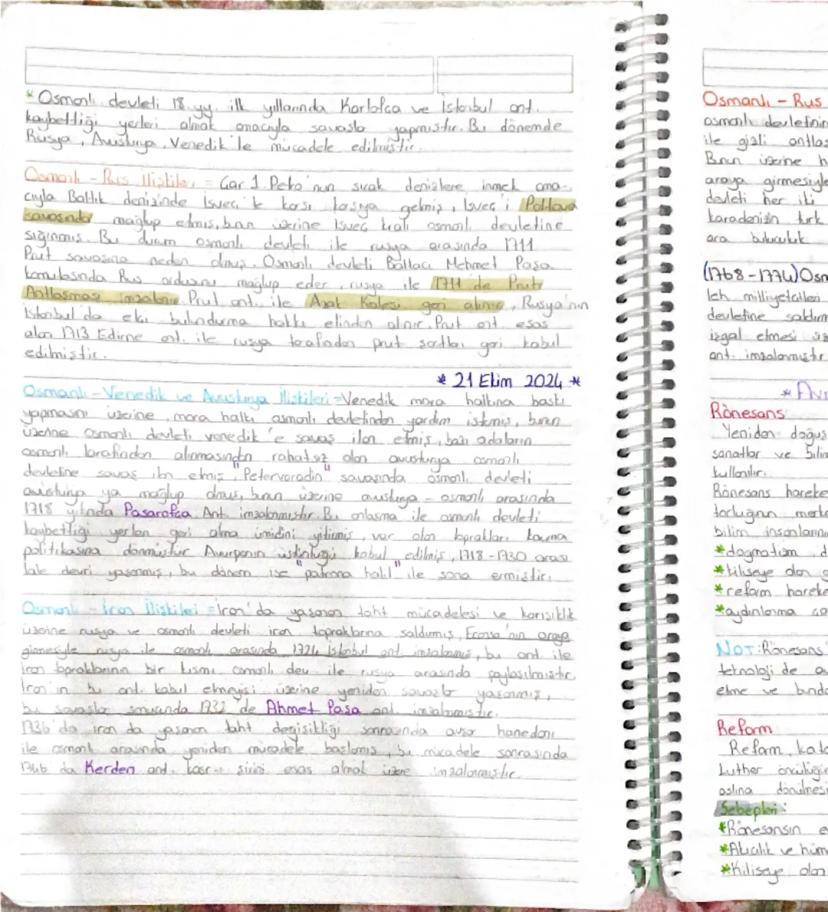 * Osmanlı devleti 18.yy. ilk yıllarında Karlofca ve İstanbul ant.
kaybettiği yerleri almak amacıyla savaşlar yapmıştır. Bu dönemde
Rusya, Avusturya, Venedik'le mücadele edilmiştir.
Osmanlı - Rus İlişkileri = Çar 1. Petro'nun sıcak denizlere inmek ama-
cıyla Baltık denizinde İsveç'le karşı karşıya gelmiş, İsveç'i Poltava
savaşında mağlup etmiş, bunun üzerine İsveç kralı osmanlı devletine
sığınmış. Bu durum osmanlı devleti ile rusya arasında 1711
Prut savaşına neden olmuş. Osmanlı devleti Baltacı Mehmet Paşa
komutasında Rus ordusunu mağlup eder, rusya ile 1711 de Prut
Antlaşması imzalanır. Prut ant. ile Azak Kalesi geri alınır, Rusya'nın
İstanbul'da elçi bulundurma hakkı elinden alınır. Prut ant. esas
alan 1713 Edirne ant. ile rusya tarafından prut şartları geri kabul
edilmiştir.
* 21 Ekim 2024 *
Osmanlı - Venedik ve Avusturya İlişkileri = Venedik mora halkına baskı
yapmasını üzerine, mora halkı osmanlı devletinden yardım istemiş, bunun
üzerine osmanlı devleti venedik'e savaş ilan etmiş, bazı adaların
osmanlı tarafından alınmasından rahatsız olan avusturya osmanlı
devletine savaş ilan etmiş "Petervaradin" savaşında osmanlı devleti
avusturya ya mağlup olmuş, bunun üzerine avusturya - osmanlı arasında
1718 yılında Pasarofça Ant. imzalanmıştır. Bu anlaşma ile osmanlı devleti
kaybettiği yerleri geri alma ümidini yitirmiş, var olan toprakları koruma
politikasına dönmüştür Avrupanın üstünlüğü kabul edilmiş, 1718-1730 arası
lale devri yaşanmış, bu dönem ise "patrona halil" ile sona ermiştir.
Osmanlı - İran İlişkileri = İran'da yaşanan taht mücadelesi ve karışıklık
üzerine rusya ve osmanlı devleti iran topraklarına saldırmış, Fransa'nın araya
girmesiyle rusya ile osmanlı arasında 1724 İstanbul ant imzalanmış, bu ant. ile
iran topraklarının bir kısmı osmanlı dev ile rusya arasında paylaşılmıştır.
İran'ın bu ant. kabul etmeyişi üzerine yeniden savaşlar yaşanmış,
bu savaşlar sonucunda 1732 de Ahmet Paşa ant. imzalanmıştır.
1736 da iran da yaşanan taht değişikliği sonrasında avşar hanedanı
ile osmanlı arasında yeniden mücadele başlamış, bu mücadele sonrasında
1746 da Kerden ant. kasr-ı şirini esas almak üzere imzalanmıştır.
Osmanlı - Rus
osmanlı devletinin
ile gizli antlaş
Bunun üzerine
araya girmesiyle
devleti her iki
karadenizin türk
ara buluculuk
(1768-1774) Osm
Leh milliyetçileri
devletine saldırm
işgal etmesi
ant. imzalanmıştır
Rönesans
Yeniden doğuş
sanatlar ve bilim
kullanılır.
Rönesans hareke
bilim insanların
* dogmatizm
* kiliseye olan
* reform hareke
* aydınlanma
NOT: Rönesans
teknoloji de
etme ve bunda
Reform
Reform kato
Luther öncülüğü
aslına dönülmesi
Sebepleri:
* Rönesansın
* Akılcılık ve hüm
* Kiliseye olan